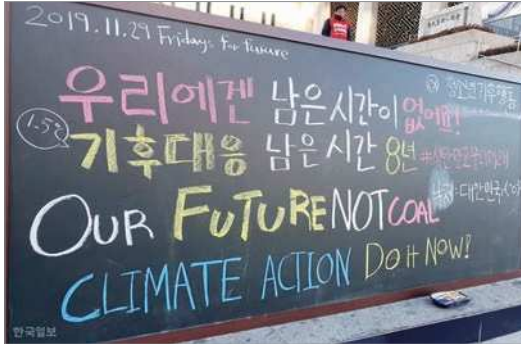 2019.11.29 Fridays for future
우리에겐 남은 시간이 없어요!
1.5℃
기후대응 남은 시간 8년
OUR FUTURE NOT COAL
CLIMATE ACTION Do it Now!
한국일보